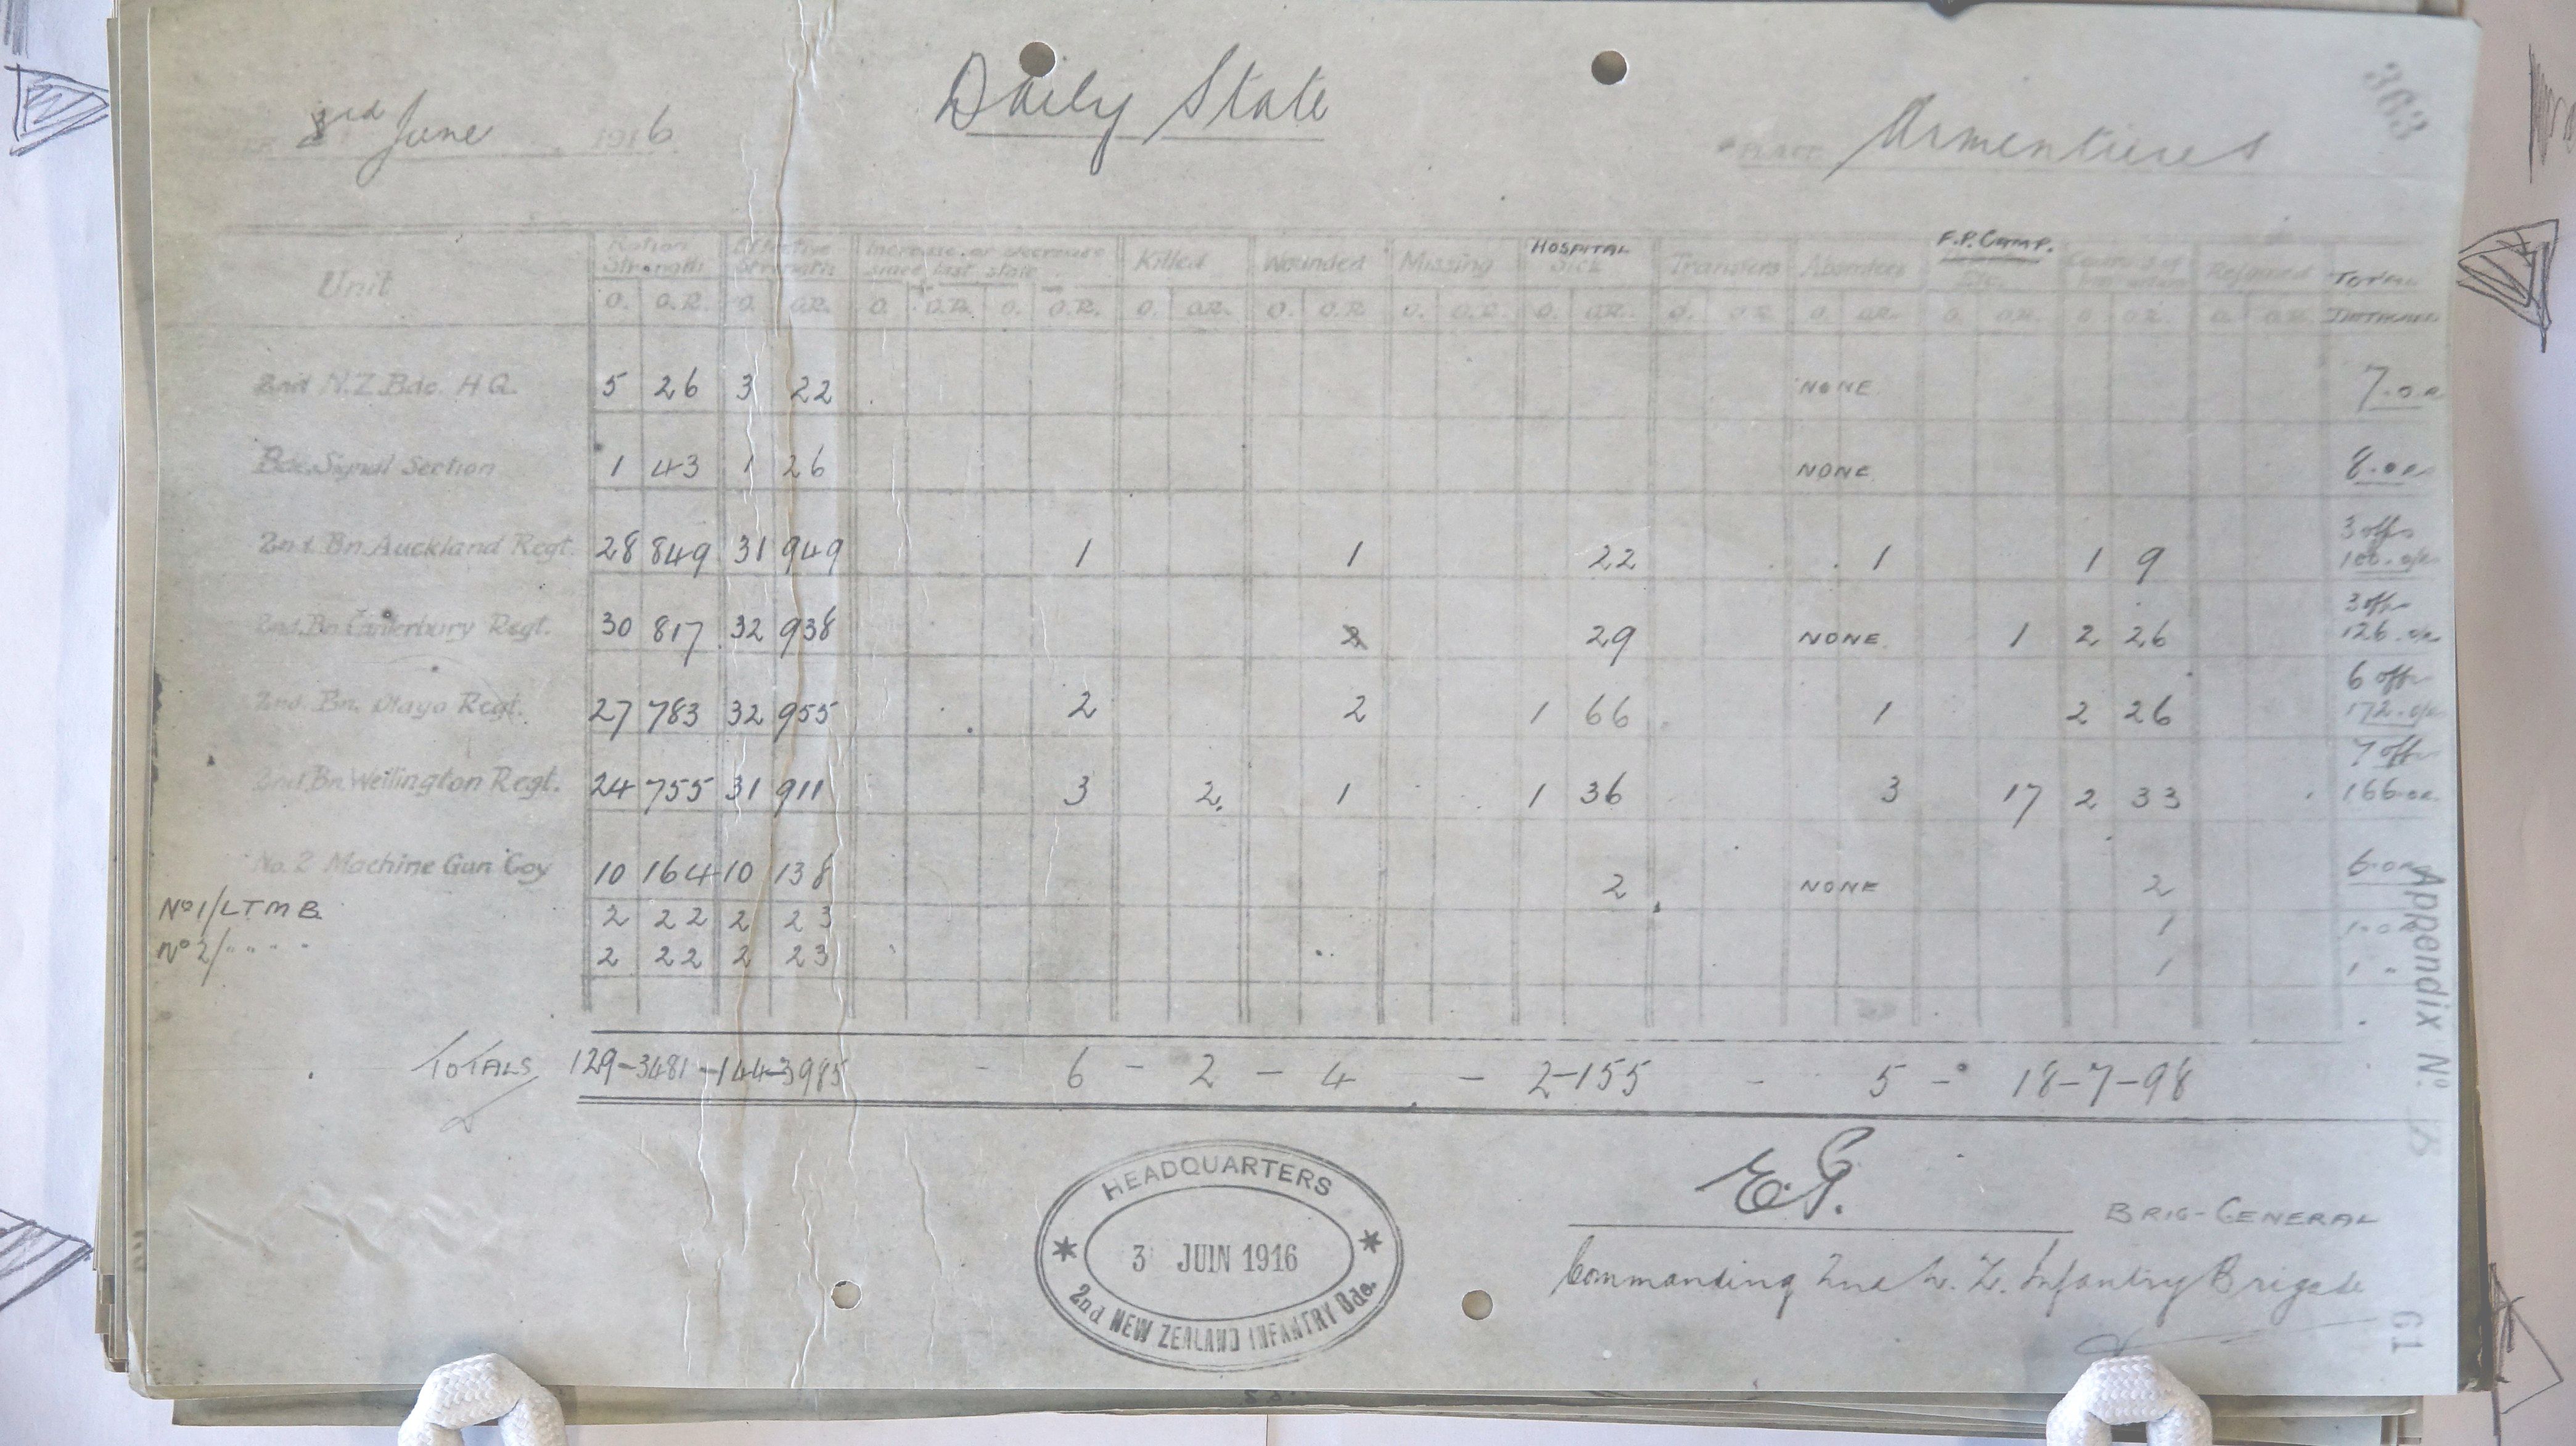 363
3rd June 1916.
Daily State
Place Armentieres
Unit Ration Strength Effective Strength Increase or decrease since last state Killed Wounded Missing HOSPITAL Sick Transfers Absentees F.P. Camp. Etc. Courses of Instruction Rejoined TOTAL
O. O.R. O. O.R. O. O.R. O. O.R. O. O.R. O. O.R. O. O.R. O. O.R. O. O.R. O. O.R. O. O.R. O. O.R. O. O.R.
+ -
2nd N.Z. Bde. H.Q. 5 26 3 22 NONE. 7. O.R
Bde. Signal Section 1 43 1 26 NONE 8. O.R.
2nd Bn. Auckland Regt. 28 849 31 949 1 1 22 1 1 9 3 offs 100. O/R
2nd. Bn. Canterbury Regt. 30 817 32 938 29 NONE. 1 2 26 3 offs 126. O/R
2nd. Bn. Otago Regt. 27 783 32 955 2 2 1 66 1 2 26 6 offs 172. O/R
2nd. Bn. Wellington Regt. 24 755 31 911 3 2. 1 1 36 3 17 2 33 7 offs 166 O.R.
No. 2 Machine Gun Coy 10 164 10 138 2 NONE 2 6. O.R
No 1/LTMB 2 22 2 23 1 1. O.R
No 2/ " " " " 2 22 2 23 1 1 "
TOTALS 129-3481-144-3985 - 6 - 2 - 4 - 2-155 - 5 - 18-7-98
Appendix No. B
HEADQUARTERS
3 JUIN 1916
2nd NEW ZEALAND INFANTRY Bde.
E.G. BRIG-GENERAL
Commanding 2nd N. Z. Infantry Brigade
61